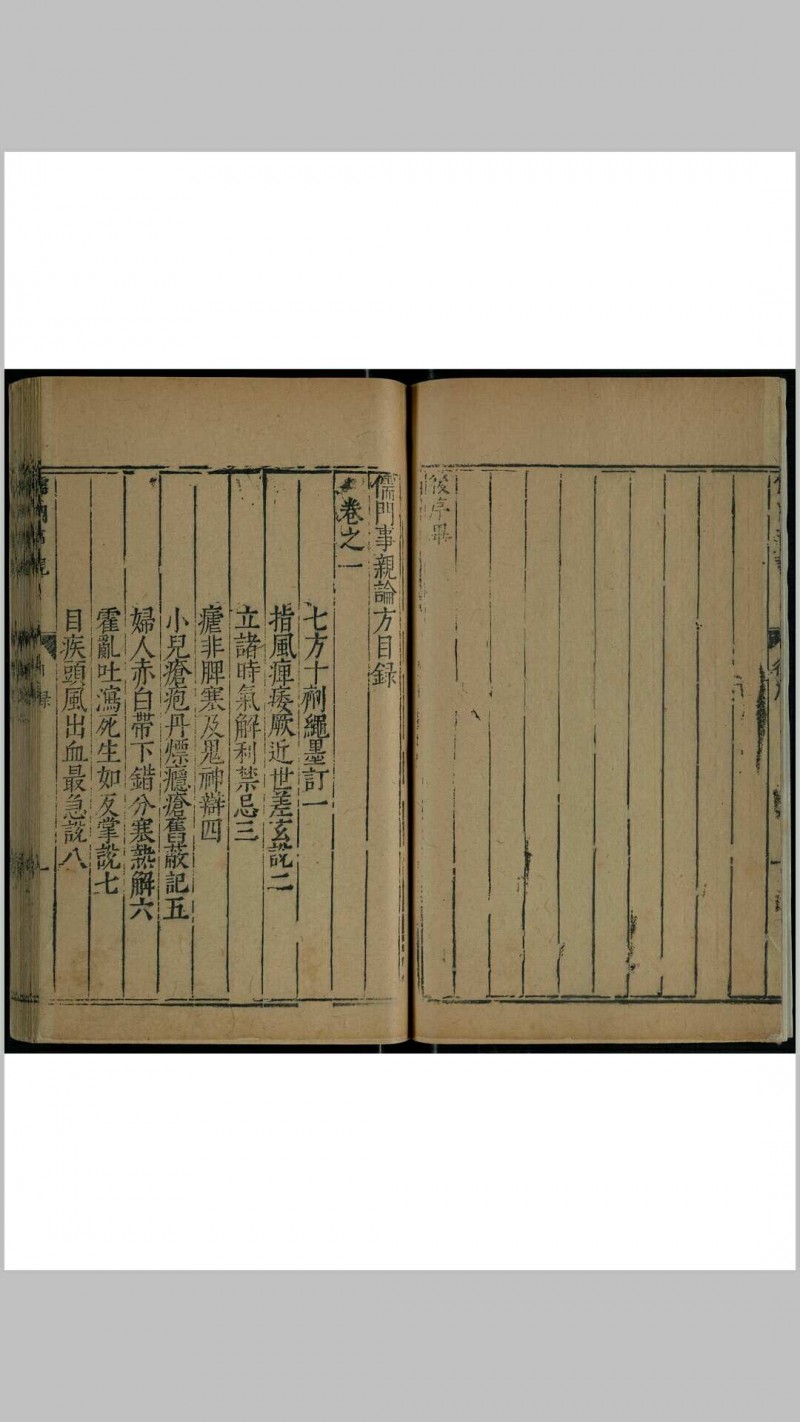 後序畢
儒門事親論方目録
卷之一
七方十劑繩墨訂一
指風痺痿厥近世差玄說二
立諸時氣解利禁忌三
瘧非脾寒及鬼神辯四
小兒瘡疱丹熛癮瘡舊蔽記五
婦人赤白帶下錯分寒熱解六
霍亂吐瀉死生如反掌說七
目疾頭風出血最急說八